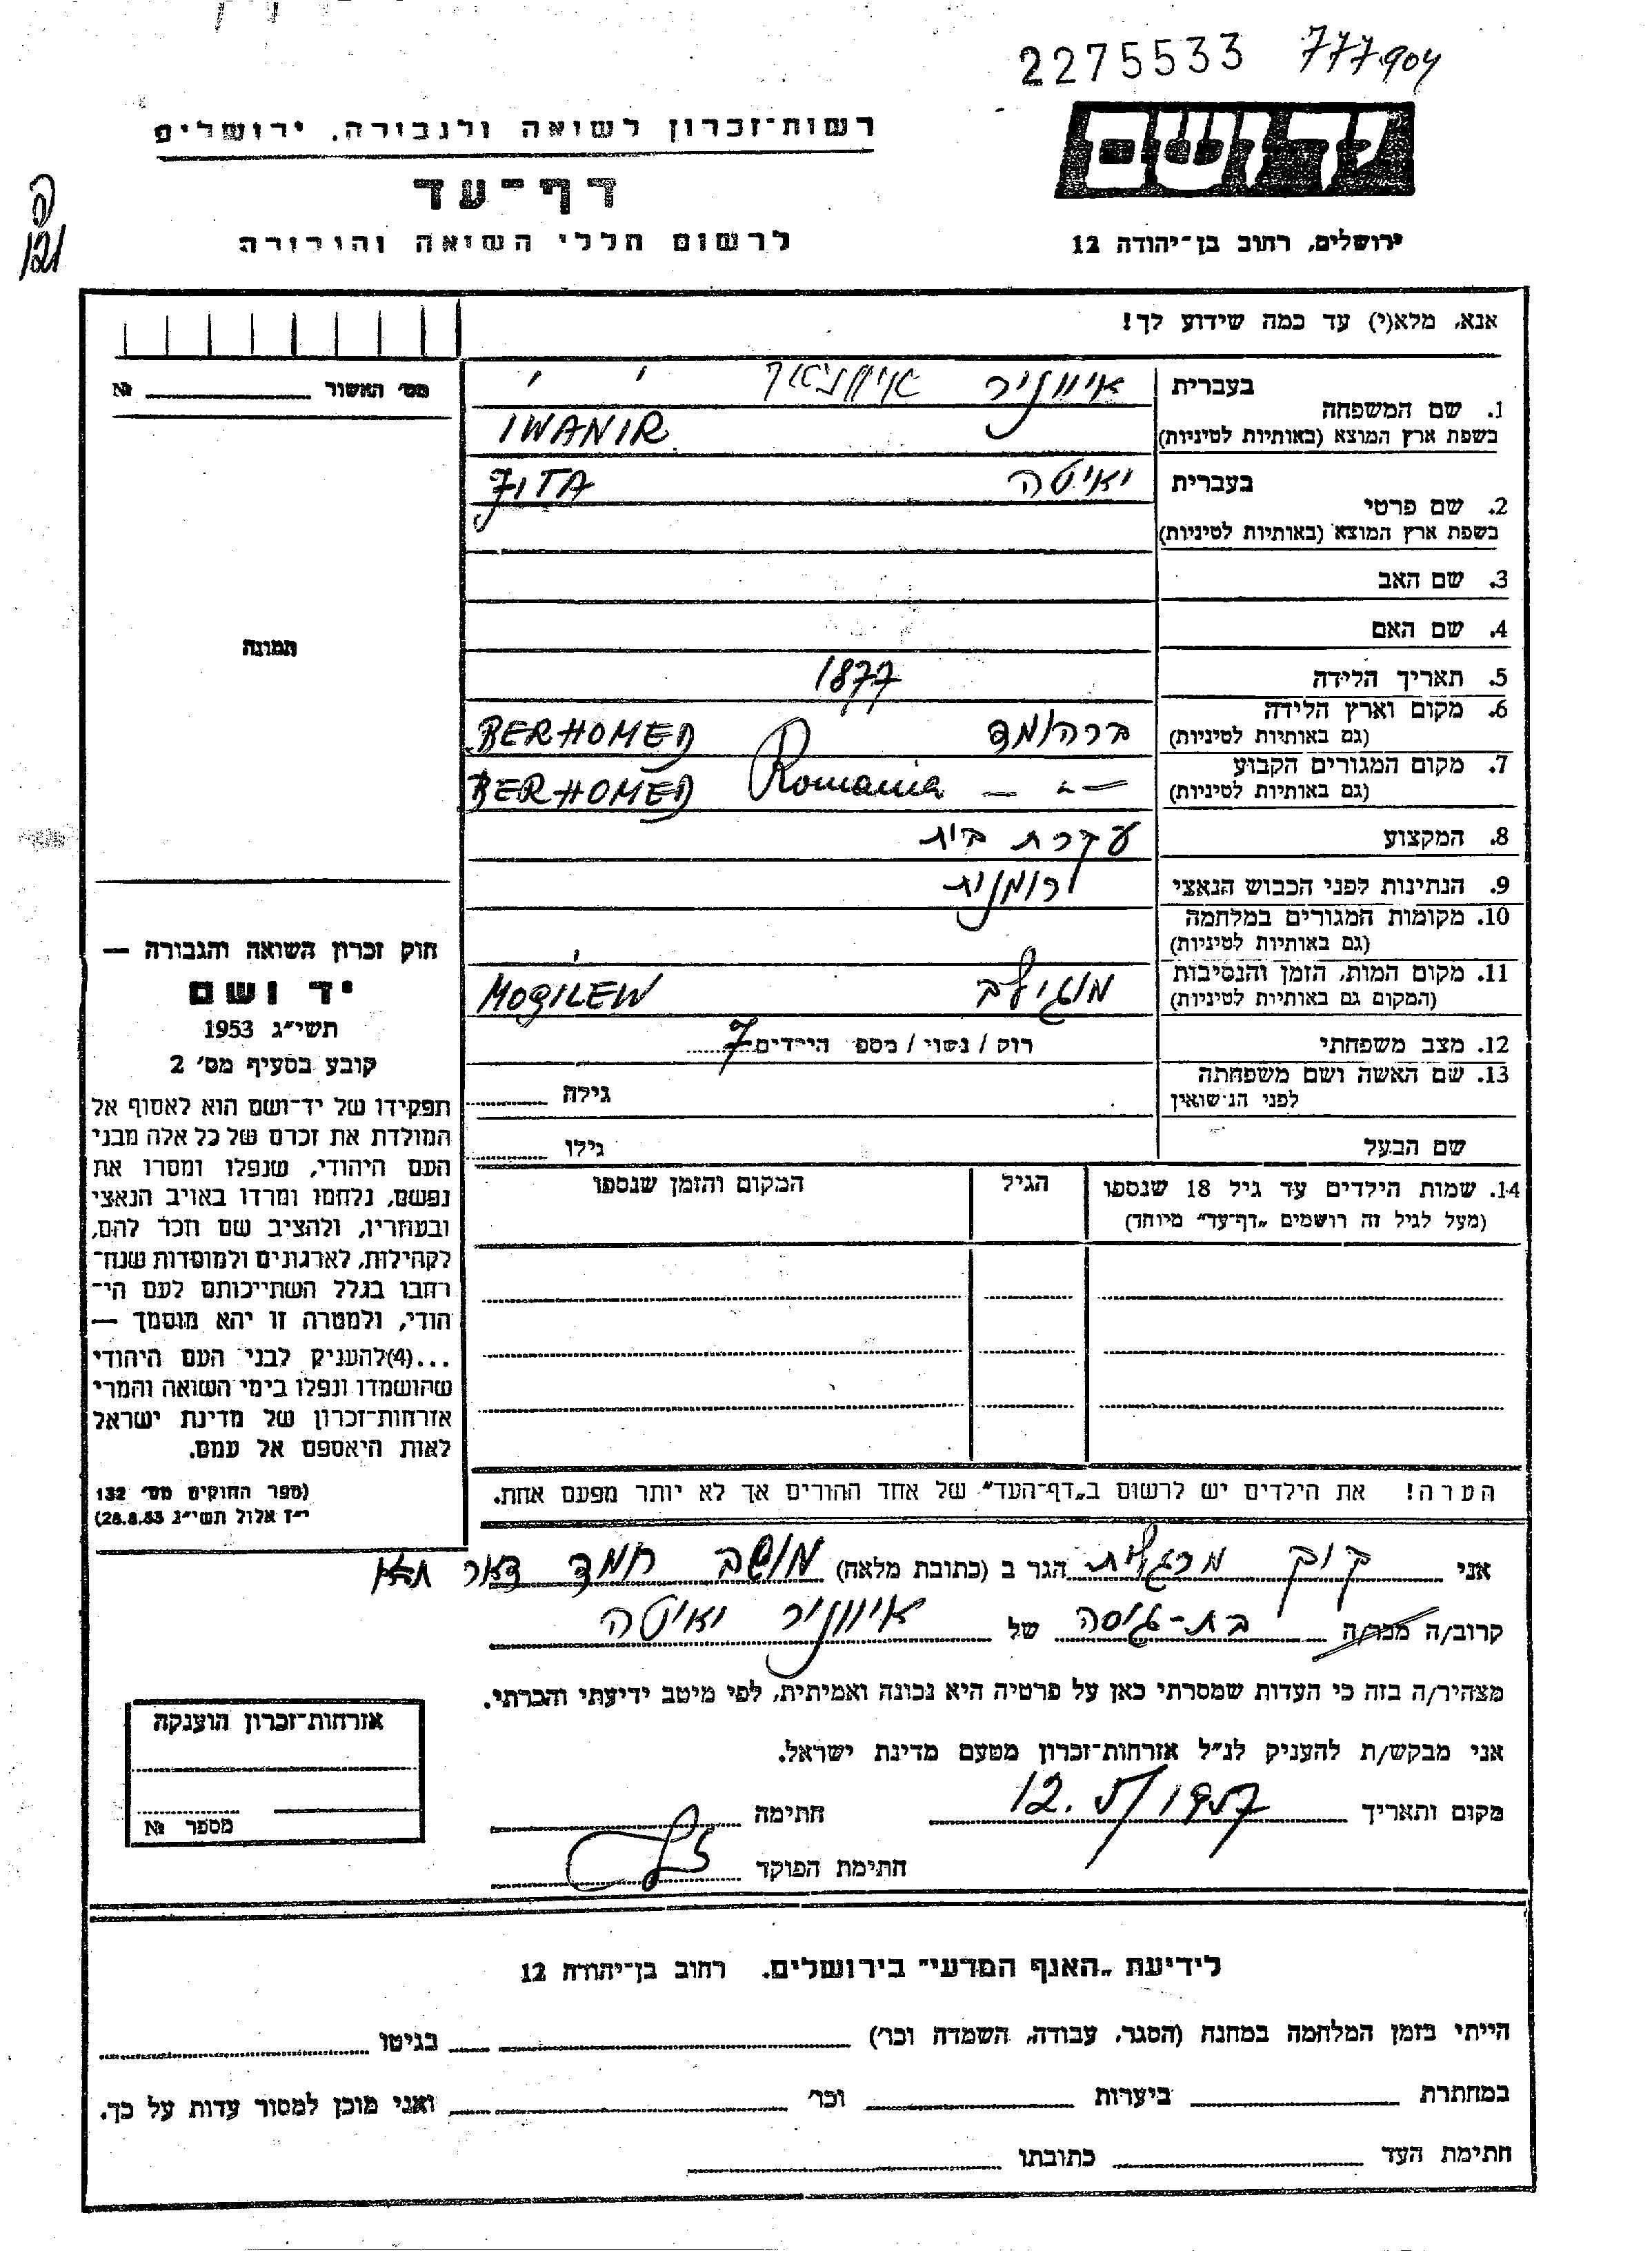 2275533 777904
רשות-זכרון לשואה ולגבורה, ירושלים
יד ושם
דף-עד
121
לרשום חללי השואה והגבורה
ירושלים, רחוב בן-יהודה 12
אנא, מלא(י) עד כמה שידוע לך!
מס׳ האשור № 
1. שם המשפחה בעברית איווניר
בשפת ארץ המוצא (באותיות לטיניות) IWANIR
2. שם פרטי בעברית יאיטה JITA
בשפת ארץ המוצא (באותיות לטיניות)
3. שם האב
4. שם האם
תמונה
5. תאריך הלידה 1877
6. מקום וארץ הלידה (גם באותיות לטיניות) ברהומד BERHOMED
7. מקום המגורים הקבוע (גם באותיות לטיניות) — " — Romania BERHOMED
8. המקצוע עקרת בית
9. הנתינות לפני הכבוש הנאצי רומנית
10. מקומות המגורים במלחמה
(גם באותיות לטיניות)
11. מקום המות, הזמן והנסיבות
(המקום גם באותיות לטיניות) מוגילב MOGILEW
12. מצב משפחתי רוק / נשוי / מספ הילדים 7
13. שם האשה ושם משפחתה
לפני הנישואין גילה
שם הבעל גילו
14. שמות הילדים עד גיל 18 שנספו הגיל המקום והזמן שנספו
(מעל לגיל זה רושמים „דף-עד" מיוחד)
חוק זכרון השואה והגבורה —
יד ושם
תשי״ג 1953
קובע בסעיף מס׳ 2
תפקידו של יד-ושם הוא לאסוף אל
המולדת את זכרם של כל אלה מבני
העם היהודי, שנפלו ומסרו את
נפשם, נלחמו ומרדו באויב הנאצי
ובעוזריו, ולהציב שם וזכר להם,
לקהילות, לארגונים ולמוסדות שנח-
רבו בגלל השתייכותם לעם הי-
הודי, ולמטרה זו יהא מוסמך —
...(4)להעניק לבני העם היהודי
שהושמדו ונפלו בימי השואה והמרי
אזרחות-זכרון של מדינת ישראל
לאות היאספם אל עמם.
(ספר החוקים מס׳ 132
י״ז אלול תשי״ג 28.8.53)
הערה! את הילדים יש לרשום ב„דף-העד" של אחד ההורים אך לא יותר מפעם אחת.
אני קוק מרגלית הגר ב (כתובת מלאה) מושב חמד דאר
קרוב/ה מכר/ה בת-גיסה של איווניר יאיטה
מצהיר/ה בזה כי העדות שמסרתי כאן על פרטיה היא נכונה ואמיתית, לפי מיטב ידיעתי והכרתי.
אני מבקש/ת להעניק לנ״ל אזרחות-זכרון מטעם מדינת ישראל.
מקום ותאריך 12.5/1957 חתימה
חתימת הפוקד
אזרחות-זכרון הוענקה
מספר №
לידיעת „האגף המדעי" בירושלים. רחוב בן-יהודה 12
הייתי בזמן המלחמה במחנה (הסגר, עבודה, השמדה וכו׳) בגיטו
במחתרת ביערות וכו׳ ואני מוכן למסור עדות על כך.
חתימת העד כתובתו